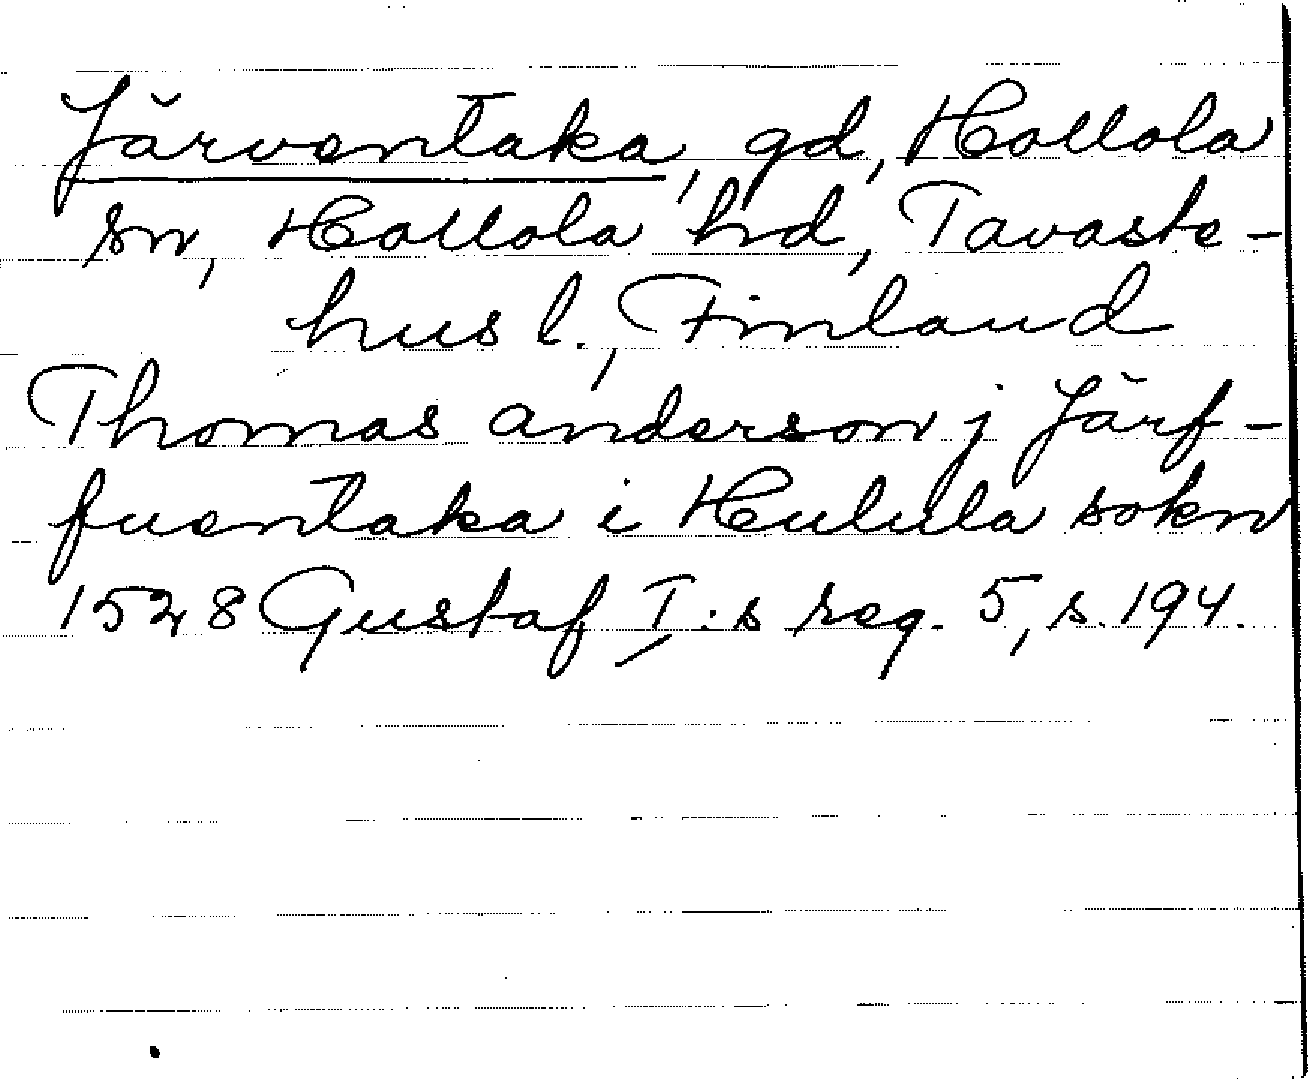 Järventaka, gd, Hollola
sn, Hollola hd, Tavaste-
hus l., Finland
Thomas anderson j Järf-
fuentaka i Hulula sokn
1528 Gustaf I:s reg. 5, s. 194.